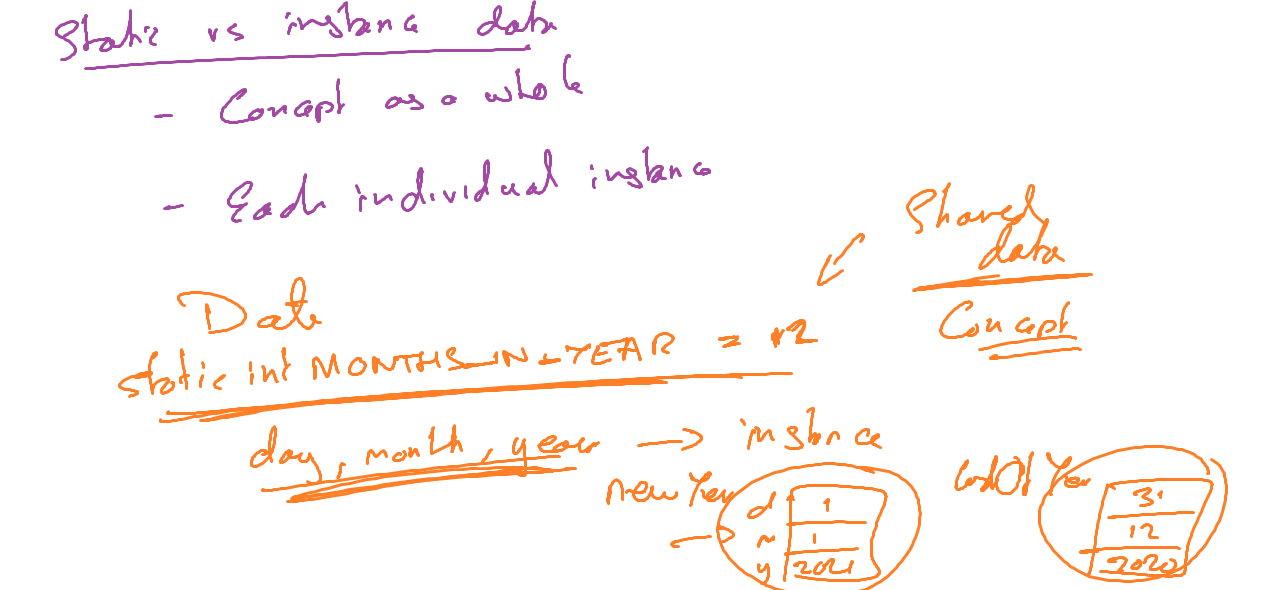 Static vs instance data
- Concept as a whole
- Each individual instance
Shared
data
Concept
Date
static int MONTHS_IN_YEAR = 12
day, month, year → instance
new Year
d 1
m 1
y 2021
endOf Year
31
12
2020